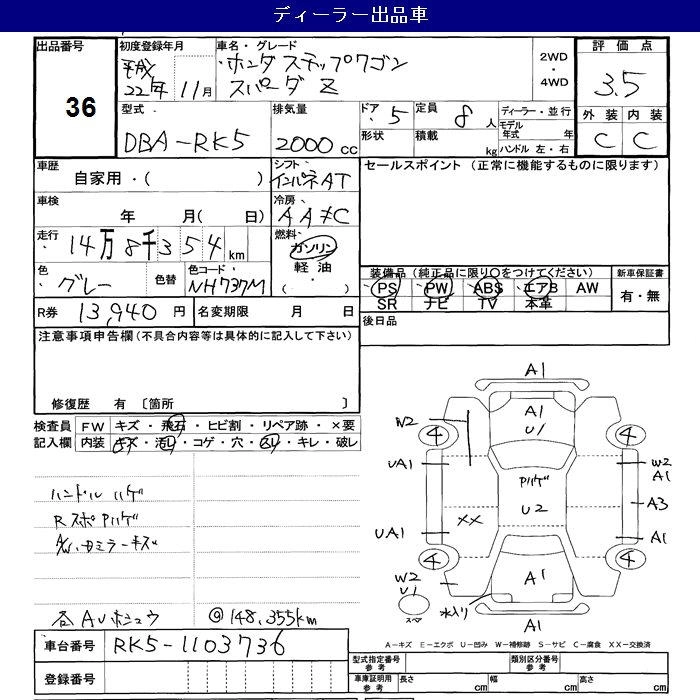 ディーラー出品車
出品番号
36
初度登録年月
平成
22年 11月
車名・グレード
ホンダ ステップワゴン
スパーダ Z
2WD
・
4WD
評価点
3.5
型式
DBA-RK5
排気量
2000 cc
ドア 5
形状
定員 8 人
積載 kg
ディーラー・並行
モデル年式 年
ハンドル 左・右
外装 内装
C C
車歴
自家用・( )
シフト
インパネAT
セールスポイント (正常に機能するものに限ります)
車検
年 月( 日)
冷房
AAC
走行
14万8千354km
燃料
ガソリン
軽油
・( )
色
グレー
色替
色コード
NH737M
装備品 (純正品に限り○をつけてください)
PS PW ABS エアB AW
SR ナビ TV 本革
新車保証書
有・無
R券 13,940 円
名変期限 月 日
後日品
注意事項申告欄(不具合内容等は具体的に記入して下さい)
修復歴 有 〔箇所 〕
検査員
記入欄
FW キズ・飛石・ヒビ割・リペア跡・×要
内装 キズ・汚れ・コゲ・穴・スレ・キレ・破レ
ハンドル ハゲ
RスポPハゲ
ミラーキズ
各AUホシュウ
@148,355km
A1
A1
U1
W2
4
4
UA1
W2
A1
Pハゲ
U2
A3
XX
UA1
A1
4
4
W2
U1
A1
水入り
スマ
A1
A-キズ E-エクボ U-凹み W-補修跡 S-サビ C-腐食 XX-交換済
車台番号 RK5-1103736
登録番号
型式指定番号
参考
類別区分番号
参考
車庫証明用
参考
長さ cm
幅 cm
高さ cm